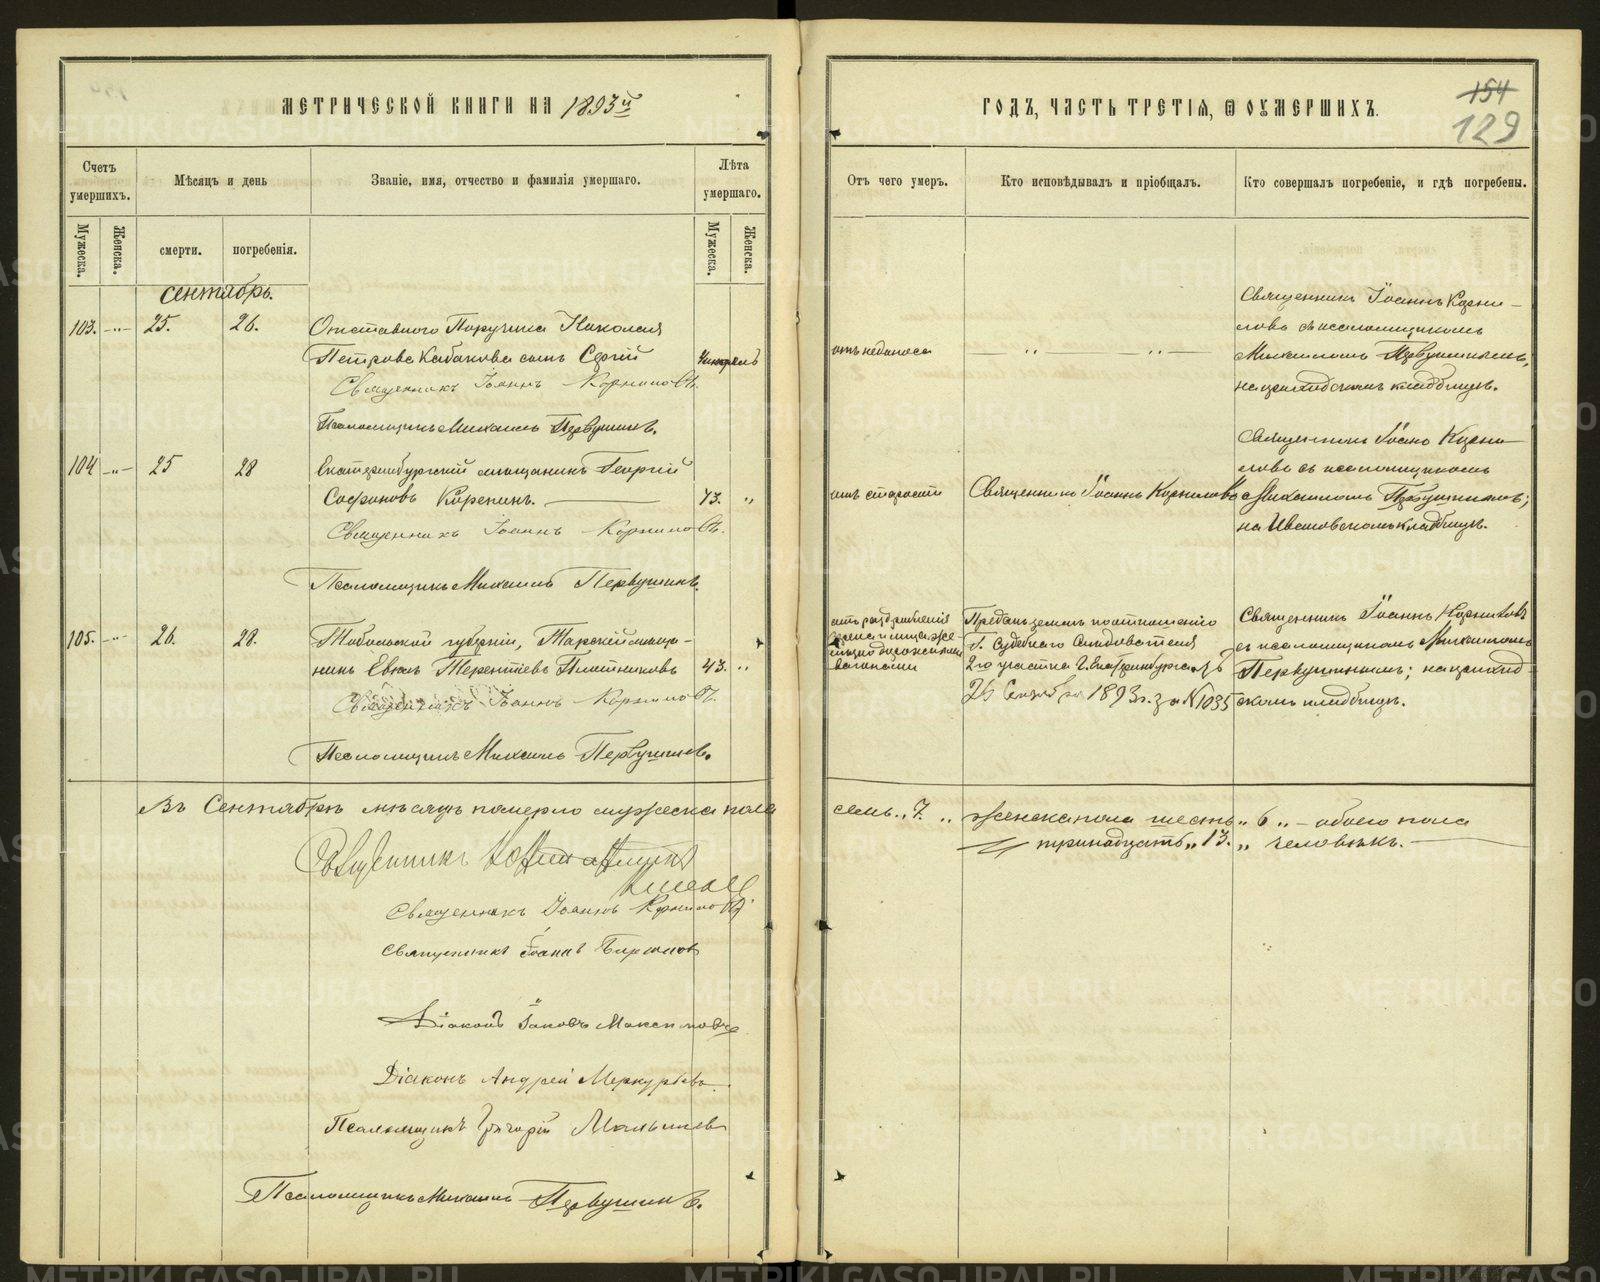 МЕТРИЧЕСКОЙ КНИГИ НА 1893й
Счетъ умершихъ.
Мѣсяцъ и день
Званіе, имя, отчество и фамилія умершаго.
Лѣта умершаго.
Мужеска.
Женска.
смерти.
погребенія.
Мужеска.
Женска.
Сентябрь.
103. -"- 25. 26. Отставного Поручика Николая
Петрова Кабакова сынъ Сергій
Священникъ Іоаннъ Корниловъ.
Псаломщикъ Михаилъ Первушинъ.
104 -"- 25 28 Екатеринбургскій мѣщанинъ Георгій
Софроновъ Корепинъ. 73. "
Священникъ Іоаннъ Корниловъ.
Псаломщикъ Михаилъ Первушинъ.
105. -"- 26. 28. Тобольской губерніи, Тарскій мѣща-
нинъ Евкл Терентьевъ Плотниковъ 43. "
Священникъ Іоаннъ Корниловъ.
Псаломщикъ Михаилъ Первушинъ.
Въ Сентябрѣ мѣсяцѣ померло мужеска пола
Священникъ
Священникъ Іоаннъ Корниловъ
Священникъ Іоаннъ
Діаконъ Іаковъ Максимовъ
Діаконъ Андрей Меркурьевъ.
Псаломщикъ Григорій
Псаломщикъ Михаилъ Первушинъ.
ГОДЪ, ЧАСТЬ ТРЕТІЯ, Ѡ ОУМЕРШИХЪ.
154
129
Отъ чего умеръ.
Кто исповѣдывалъ и пріобщалъ.
Кто совершалъ погребеніе, и гдѣ погребены.
отъ недоноса
" "
Священникъ Іоаннъ Корни-
ловъ съ псаломщикомъ
Михаиломъ Первушинымъ;
кладбищѣ.
отъ старости
Священникъ Іоаннъ Корниловъ
Священникъ Іоаннъ Корни-
ловъ съ псаломщикомъ
Михаиломъ Первушинымъ;
на Ивановскомъ кладбищѣ.
отъ раздробленія
вагонами
Преданъ землѣ по отношенію
Г. Судебнаго Слѣдователя
2го участка г. Екатеринбурга отъ
26 Сентября 1893 г. за №1035
Священникъ Іоаннъ Корниловъ
съ псаломщикомъ Михаиломъ
Первушинымъ;
скомъ кладбищѣ.
семь "7. " женска пола шесть " 6 " – обоего пола
тринадцать " 13. " человѣкъ.
METRIKI.GASO-URAL.RU